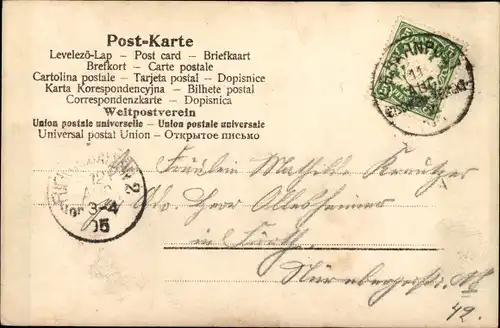 Post-Karte
Levelező-Lap — Post card — Briefkaart
Brefkort — Carte postale
Cartolina postale — Tarjeta postal — Dopisnice
Karta Korespondencyjna — Bilhete postal
Correspondenzkarte — Dopisnica
Weltpostverein
Union postale universelle — Union postale universale
Universal postal Union — Открытое письмо
BAHNPOST
11
2
3-4
05
Fräulein Mathilde Kreutzer
Adr. Herr
in Fürth
Nürnbergerstr.
42.